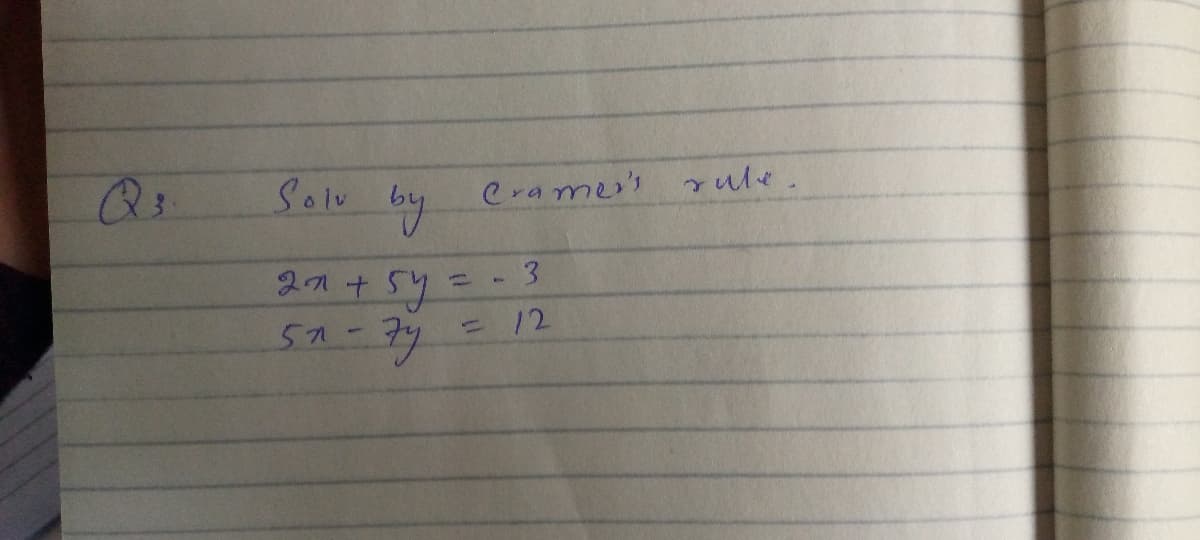 Q3. Solv by Cramer's rule.
2x + 5y = - 3
5x - 7y = 12